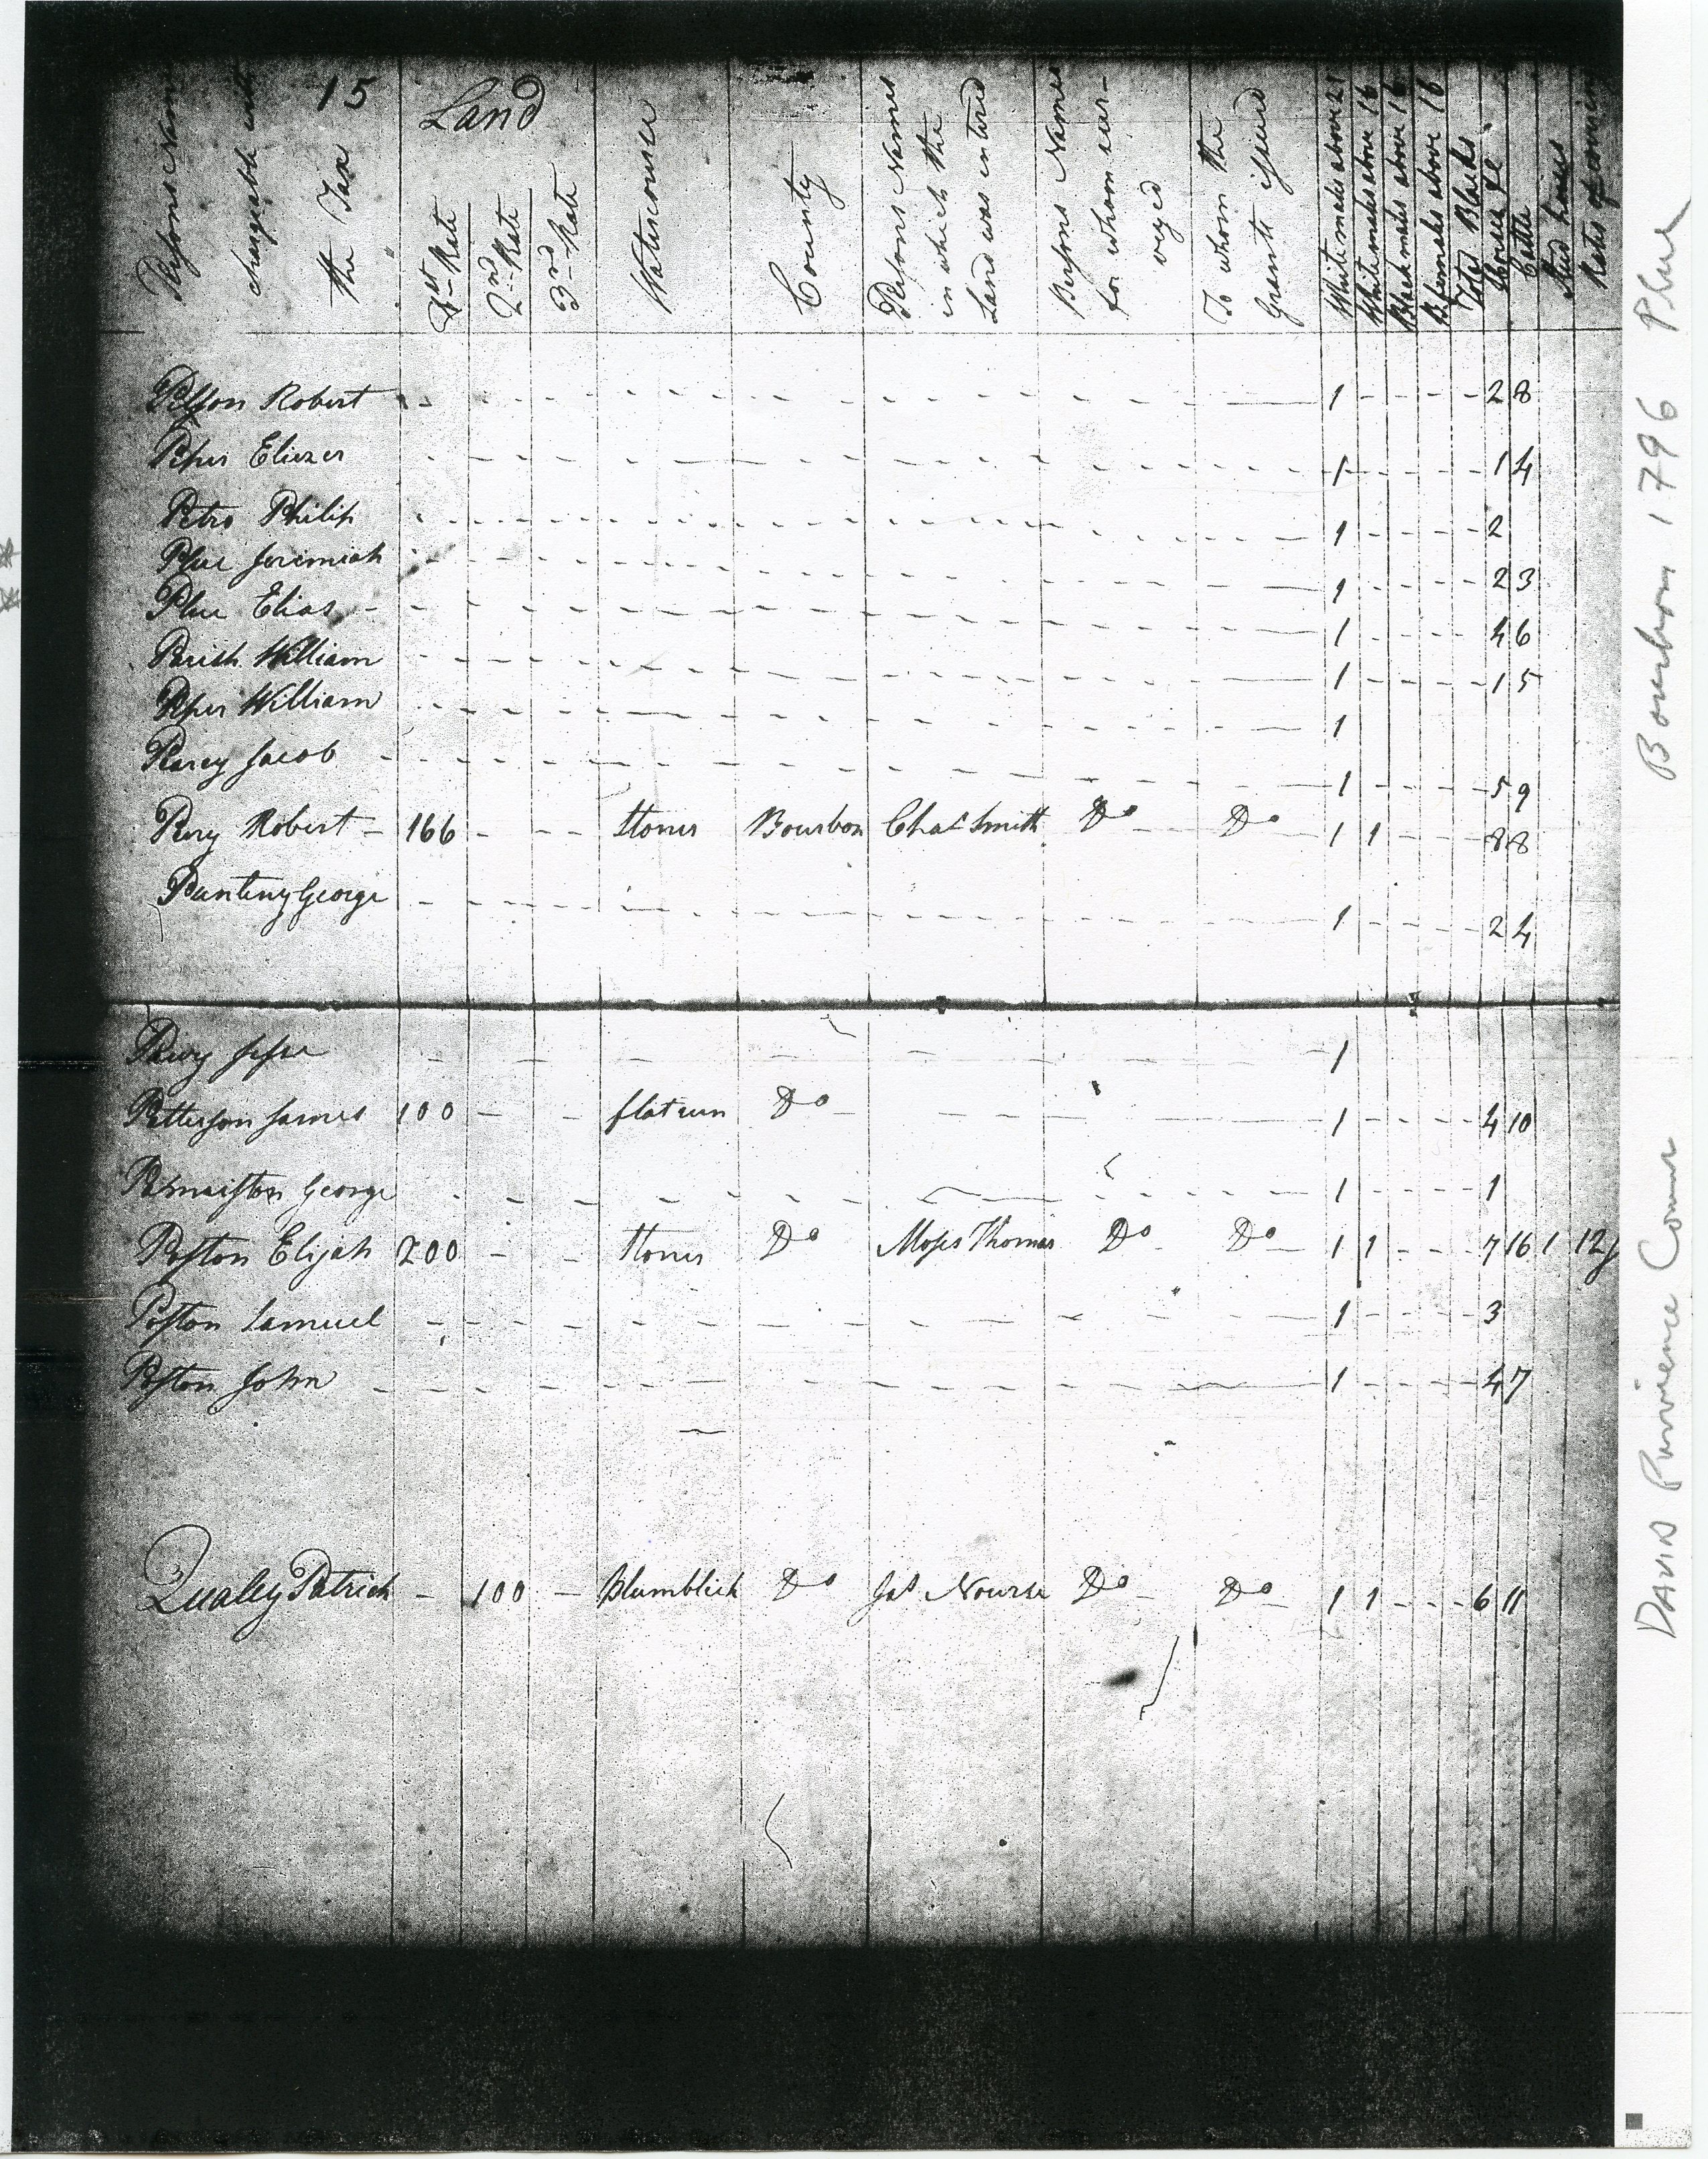 15
Persons Names chargeable with the Tax
Land
1st Rate
2nd Rate
3rd Rate
Watercourse
County
Persons Names in which the Land was entered
Persons Names for whom surveyed
To whom the Grant issued
White males above 21
White males above 16
Black males above 16
B females above 16
Total Blacks
Horses &c
Cattle
Stud horses
Rates of covering
Robert 1 2 8
Eliezer 1 1 4
Petro Philip 1 2
Plue Jeremiah 1 2 3
Plue Elias 1 4 6
Parish William 1 1 5
Piper William 1
Percy Jacob 1 5 9
Robert 166 Stoner Bourbon Chas Smith Do Do 1 1 8 8
George 1 2 4
Jesse 1
Patterson James 100 flat run Do 1 4 10
George 1 1
Poston Elijah 200 Stoner Do Moses Thomas Do Do 1 1 7 16 1 12/
Poston Samuel 1 3
Poston John 1 4 7
Qualey Patrick 100 Plumblick Do Jas Nourse Do Do 1 1 6 11
Bourbon 1796 Plue
DAVIS Purvience Comr